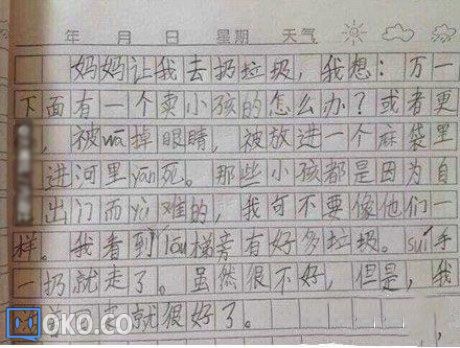 年 月 日 星期 天气
妈妈让我去扔垃圾，我想：万一
下面有一个卖小孩的怎么办？或者更
，被wā掉眼睛，被放进一个麻袋里
进河里yān死。那些小孩都是因为自
出门而yù难的，我可不要像他们一
样。我看到lóu梯旁有好多垃圾。suí手
一扔就走了。虽然很不好，但是，我
就很好了。
OKO.CO